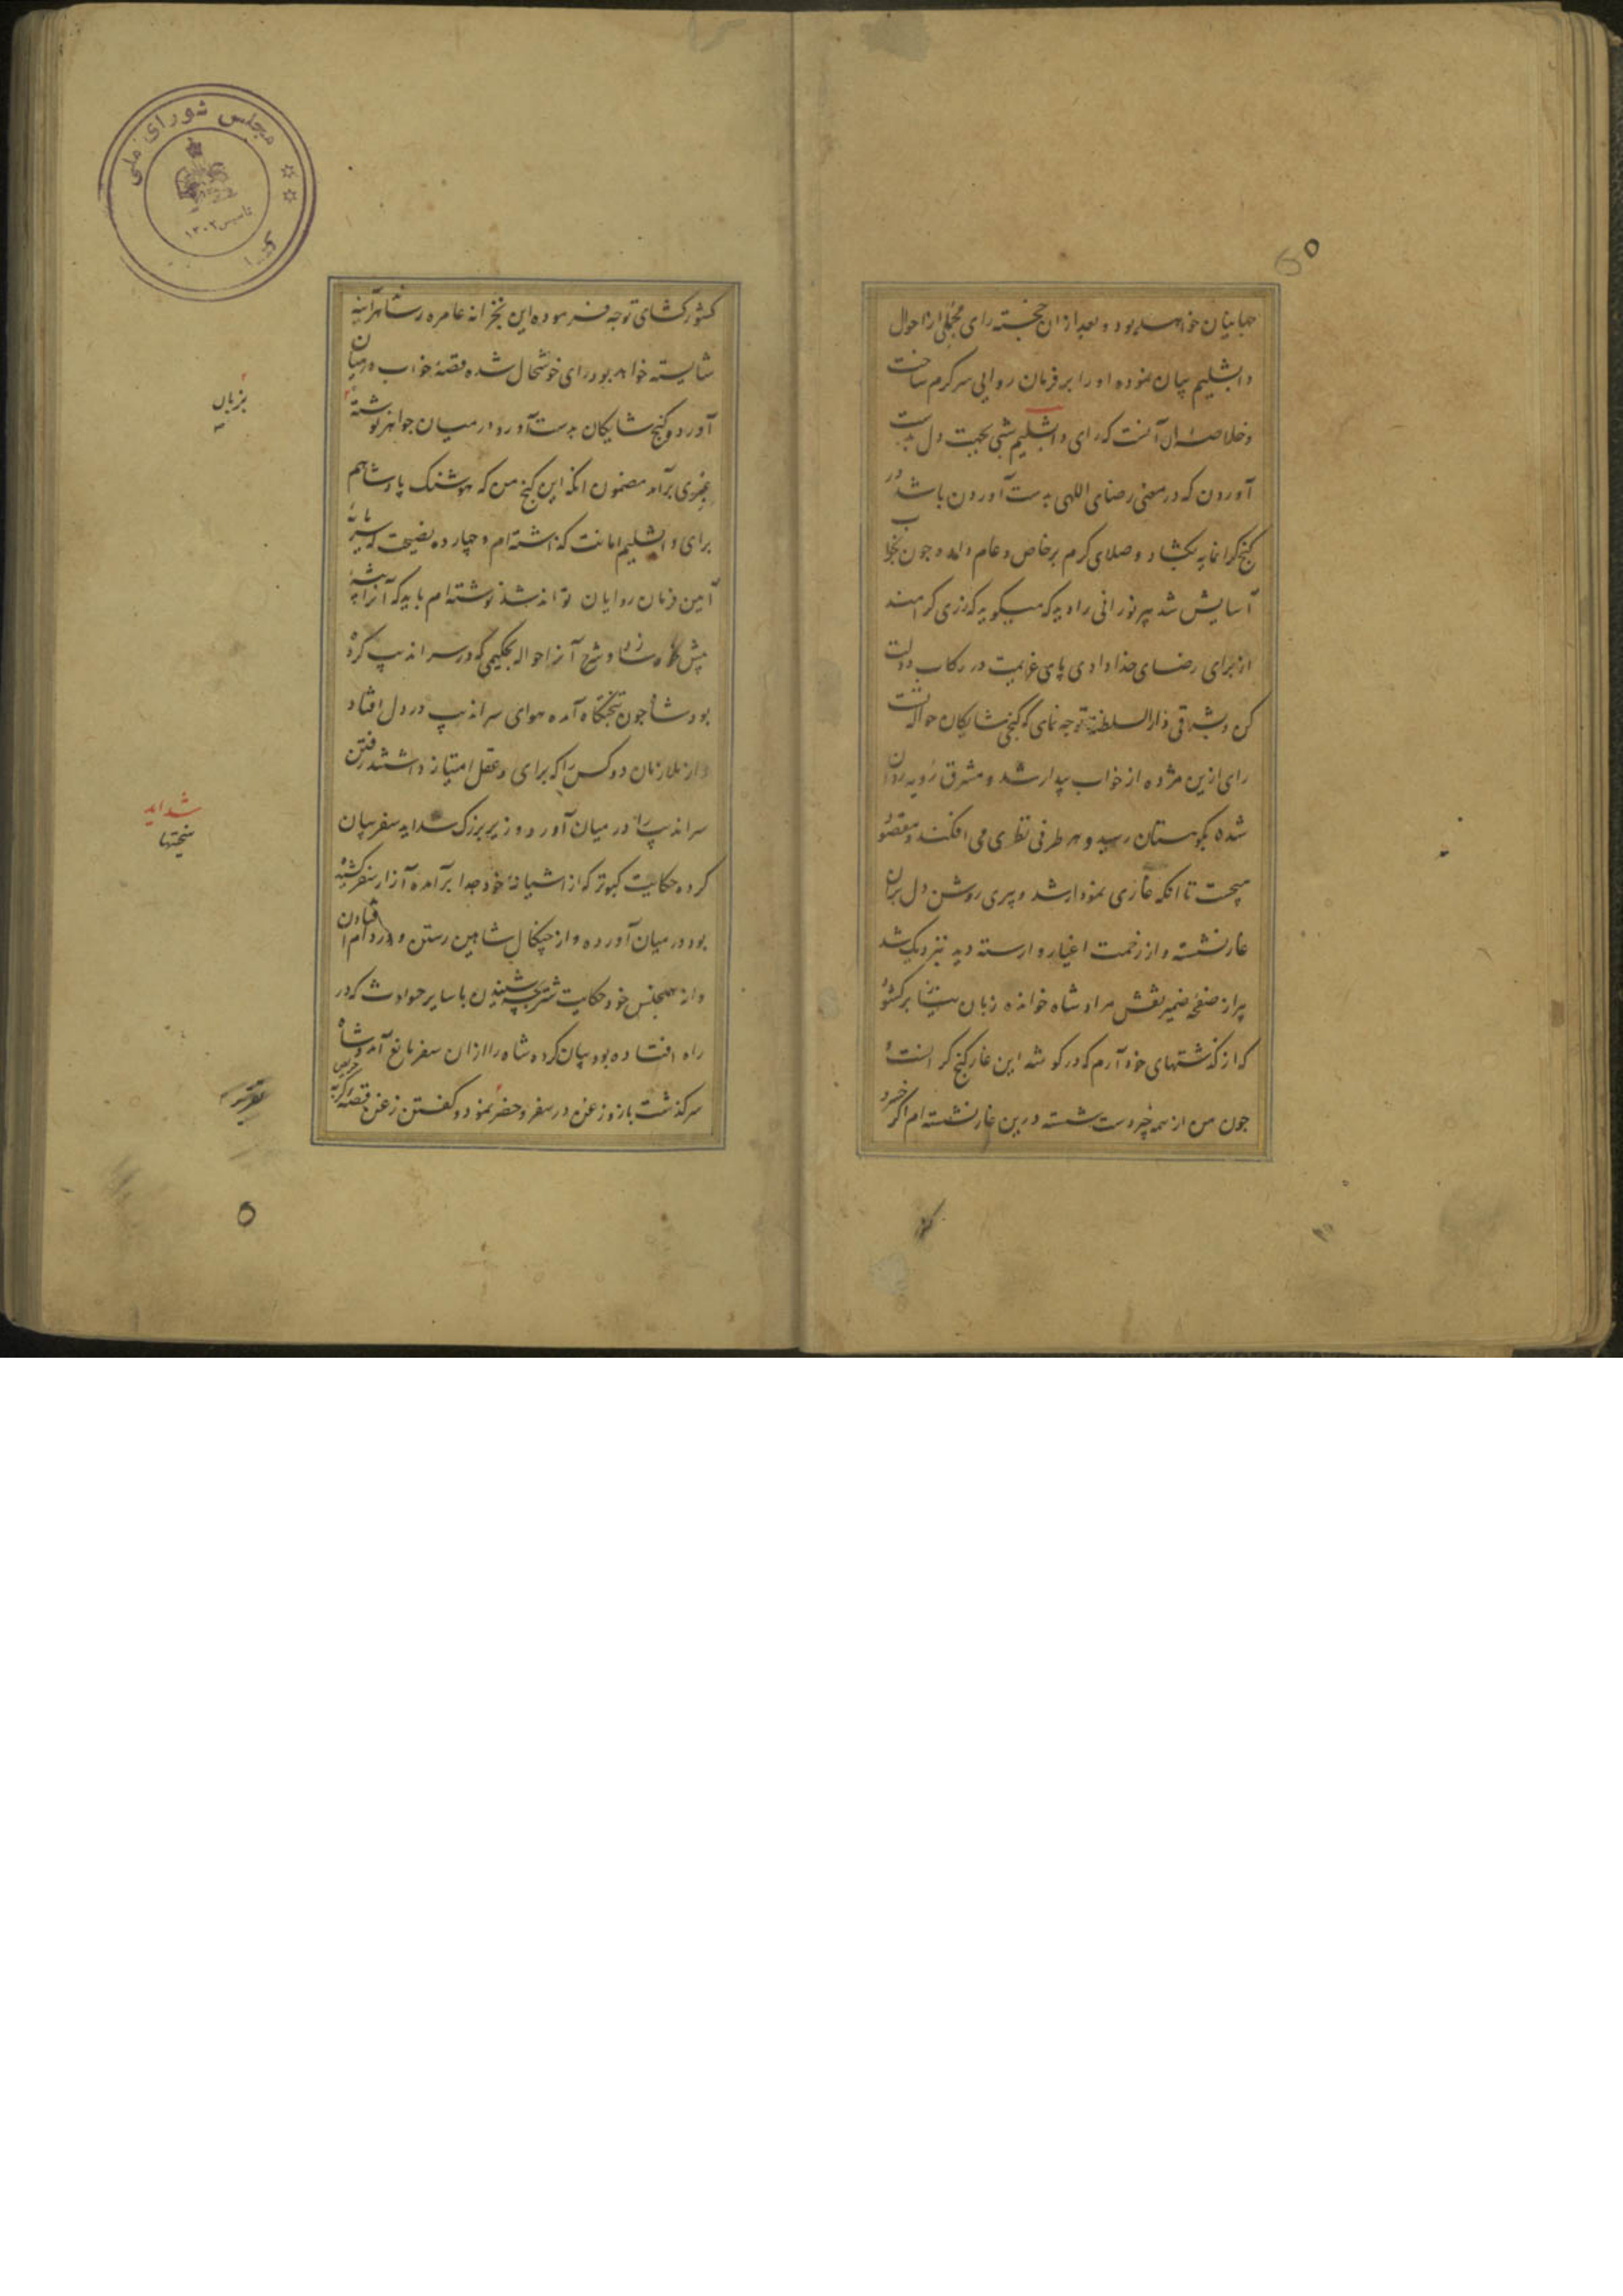 جهانیان خواهد بود و بعد ازان خجسته رای مجملی از احوال
دابشلیم بیان نموده او را بر فرمان روایی سرکرم ساخت
و خلاصه ان آنست که رای دابشلیم شبی بجهت دل بدست
آوردن که در معنی رضای اللهی بدست آوردن باشد در
کنج کرانمایه بکشاد و صلای کرم بر خاص و عام داده جون بخواب
آسایش شد پیر نورانی را دید که میکوید که زری کرامند
از برای رضای خدا دادی پای عزیمت در رکاب دولت
کن و بشرقی دار السلطنة توجه نمای که کنجی شایکان حواله تست
رای ازین مژده از خواب بیدار شد و مشرق رویه روان
شده بکوهستان رسید و هر طرفی نظری می افکند و مقصود
میجست تا انکه غاری نمودار شد و پیری روشن دل بران
غار نشسته و از زحمت اغیار وارسته دید نزدیک شد
پیر از صفحه ضمیر نقش مراد شاه خوانده زبان بر کشود
که از کذشتهای خود آرم که در کوشه این غار کنج کر انست
جون من از همه چیز دست شسته درین غار نشسته ام اکر خسرو
کشور
کشور کشای توجه فرموده این بخزانه عامره رساند هر آینه
شایسته خواهد بود رای خوشحال شده قصهٔ خواب در میان
آورد و کنج شایکان بدست آورد و در میان جواهر نوشته
عبری برآمد مضمون انکه این کنج من که هوشنک پادشاهم
برای دابشلیم امانت کذاشته ام و چهارده نصیحت که سرمایه
آیین فرمان روایان تواند شد نوشته ام باید که آنرا پیشه
پیش کاه سازد و شرح آنرا حواله بحکیمی که در سراندیب کرده
بود شاه جون بتختکاه آمد هوای سراندیب در دل افتاد
و از ملازمان دو کس را که برای و عقل امتیاز داشتند رفتن
سراندیب را در میان آورد وزیر بزرک شداید سفر بیان
کرده حکایت کبوتر که از اشیانهٔ خود جدا برآمده آزار سفر کشیده
بود در میان آورده و از چنکال شاهین رستن و در دام افتادن
و از همجنس خود حکایت شتر بچه شنیدن با سایر حوادث که در
راه افتاده بود بیان کرده شاه را ازان سفر مانع آمد و شاه
سرکذشت باز و زغن در سفر و حضر نمود و کفتن زغن قصه کربه حریص
بزبان
شداید
سختیها
مجلس شورای ملی
تاسیس ۱۳۰۲